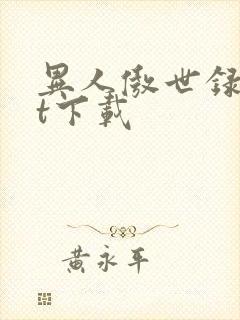 異人傲世録
t下載
黄永平